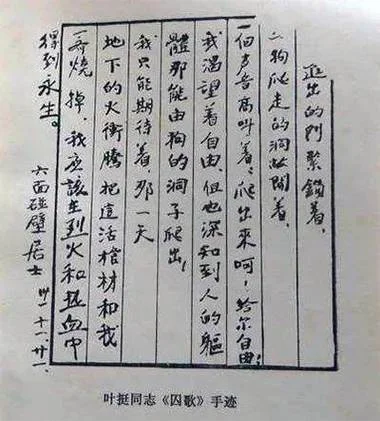 進出的門緊鎖着,
狗爬走的洞敞開着,
一個声音高叫着:爬出來呵!給尔自由!
我渴望着自由,但也深知到人的軀
體那能由狗的洞子爬出!
我只能期待着,那一天
地下的火衝騰把這活棺材和我
一齊燒掉,我应該在烈火和热血中
得到永生。
六面碰壁居士 卅一.十一.廿一.
叶挺同志《囚歌》手迹